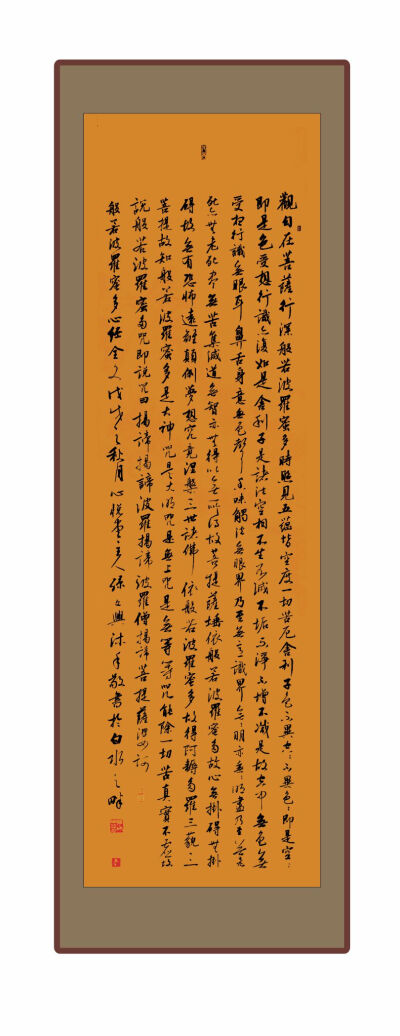 觀自在菩薩行深般若波羅蜜多時照見五蘊皆空度一切苦厄舍利子色不異空〻不異色〻即是空〻
即是色受想行識亦復如是舍利子是諸法空相不生不滅不垢不淨不增不減是故空中無色無
受想行識無眼耳鼻舌身意無色聲香味觸法無眼界乃至無意識界無〻明亦無〻明盡乃至無老
死亦無老死盡無苦集滅道無智亦無得以無所得故菩提薩埵依般若波羅蜜多故心無掛礙無掛
礙故無有恐怖遠離顛倒夢想究竟涅槃三世諸佛依般若波羅蜜多故得阿耨多羅三藐三
菩提故知般若波羅蜜多是大神咒是大明咒是無上咒是無等等咒能除一切苦真實不虛故
說般若波羅蜜多咒即說咒曰揭諦揭諦波羅揭諦波羅僧揭諦菩提薩婆訶
般若波羅蜜多心經全文戊戌之秋月心悅齋主人 沐手敬書於白水之畔